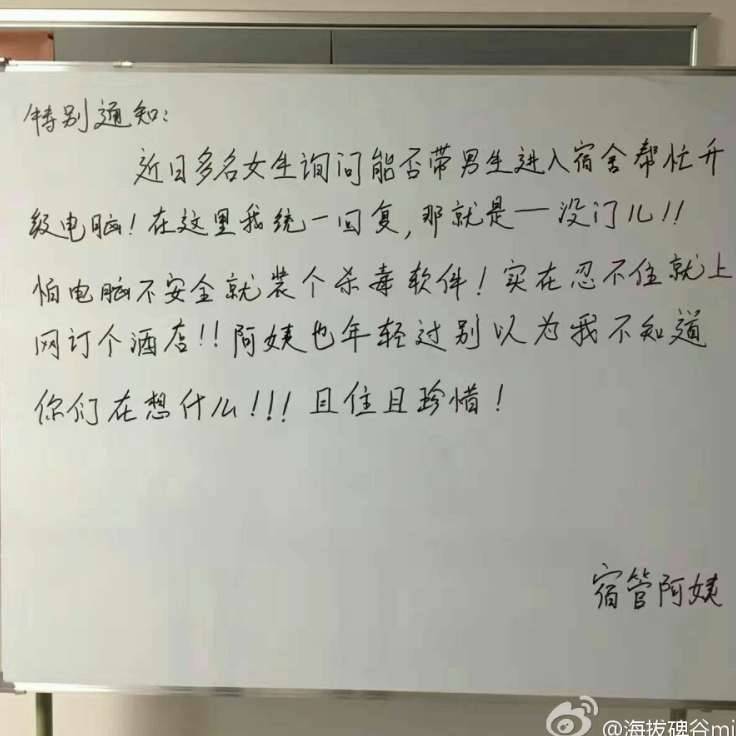 特别通知:
近日多名女生询问能否带男生进入宿舍帮忙升
级电脑!在这里我统一回复,那就是一没门儿!!
怕电脑不安全就装个杀毒软件!实在忍不住就上
网订个酒店!!阿姨也年轻过别以为我不知道
你们在想什么!!!且住且珍惜!
宿管阿姨
@海拔碑谷mi